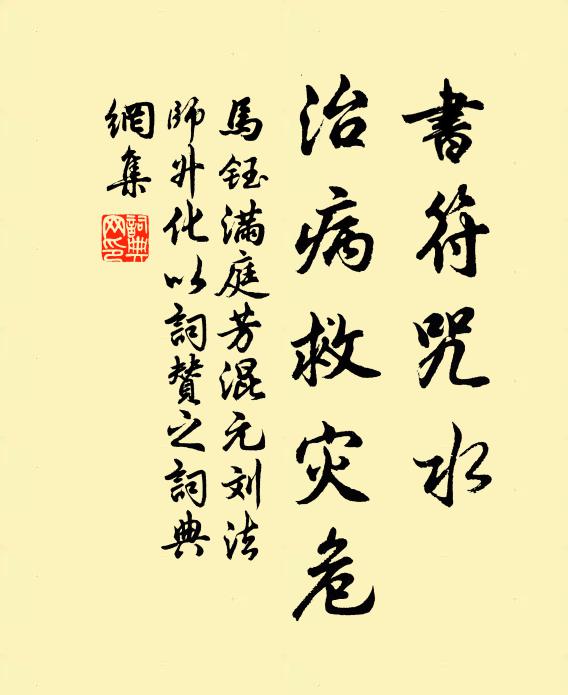 書符咒水
治病救灾危
馬鈺滿庭芳混元刘法
師升化以詞贊之詞典
網集
詞典网印